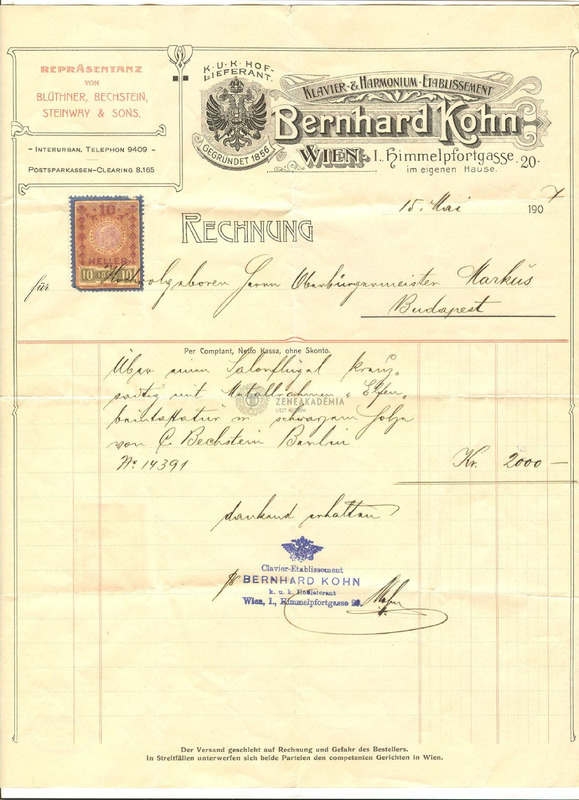 REPRÄSENTANZ
VON
BLÜTHNER, BECHSTEIN,
STEINWAY & SONS.
- INTERURBAN, TELEPHON 9409 -
POSTSPARKASSEN-CLEARING 8.165
K. U. K. HOF-
LIEFERANT.
GEGRÜNDET 1856
KLAVIER- & HARMONIUM-ETABLISSEMENT
Bernhard Kohn
WIEN, I. Himmelpfortgasse 20.
im eigenen Hause.
15. Mai 1907
RECHNUNG
10
HELLER
10 10
für Hochwolgeboren Herrn Oberbürgermeister Markus
Budapest
Per Comptant, Netto Kassa, ohne Skonto.
Über einen Salonflügel kreuz-
saitig mit Metallrahmen, Elfen-
beintastatur in schwarzem Holze
von C. Bechstein Berlin
No 14391 Kr. 2000 —
ZENEAKADÉMIA
LISZT MÚZEUM
dankend erhalten
Clavier-Etablissement
BERNHARD KOHN
k. u. k. Hoflieferant
Wien, I., Himmelpfortgasse 20.
Der Versand geschieht auf Rechnung und Gefahr des Bestellers.
In Streitfällen unterwerfen sich beide Parteien den competenten Gerichten in Wien.